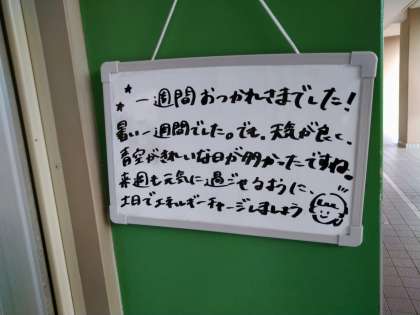 一週間おつかれさまでした！
暑い一週間でした。でも、天気が良く、
青空がきれいな日が多かったですね。
来週も元気に過ごせるように、
土日でエネルギーチャージしましょう